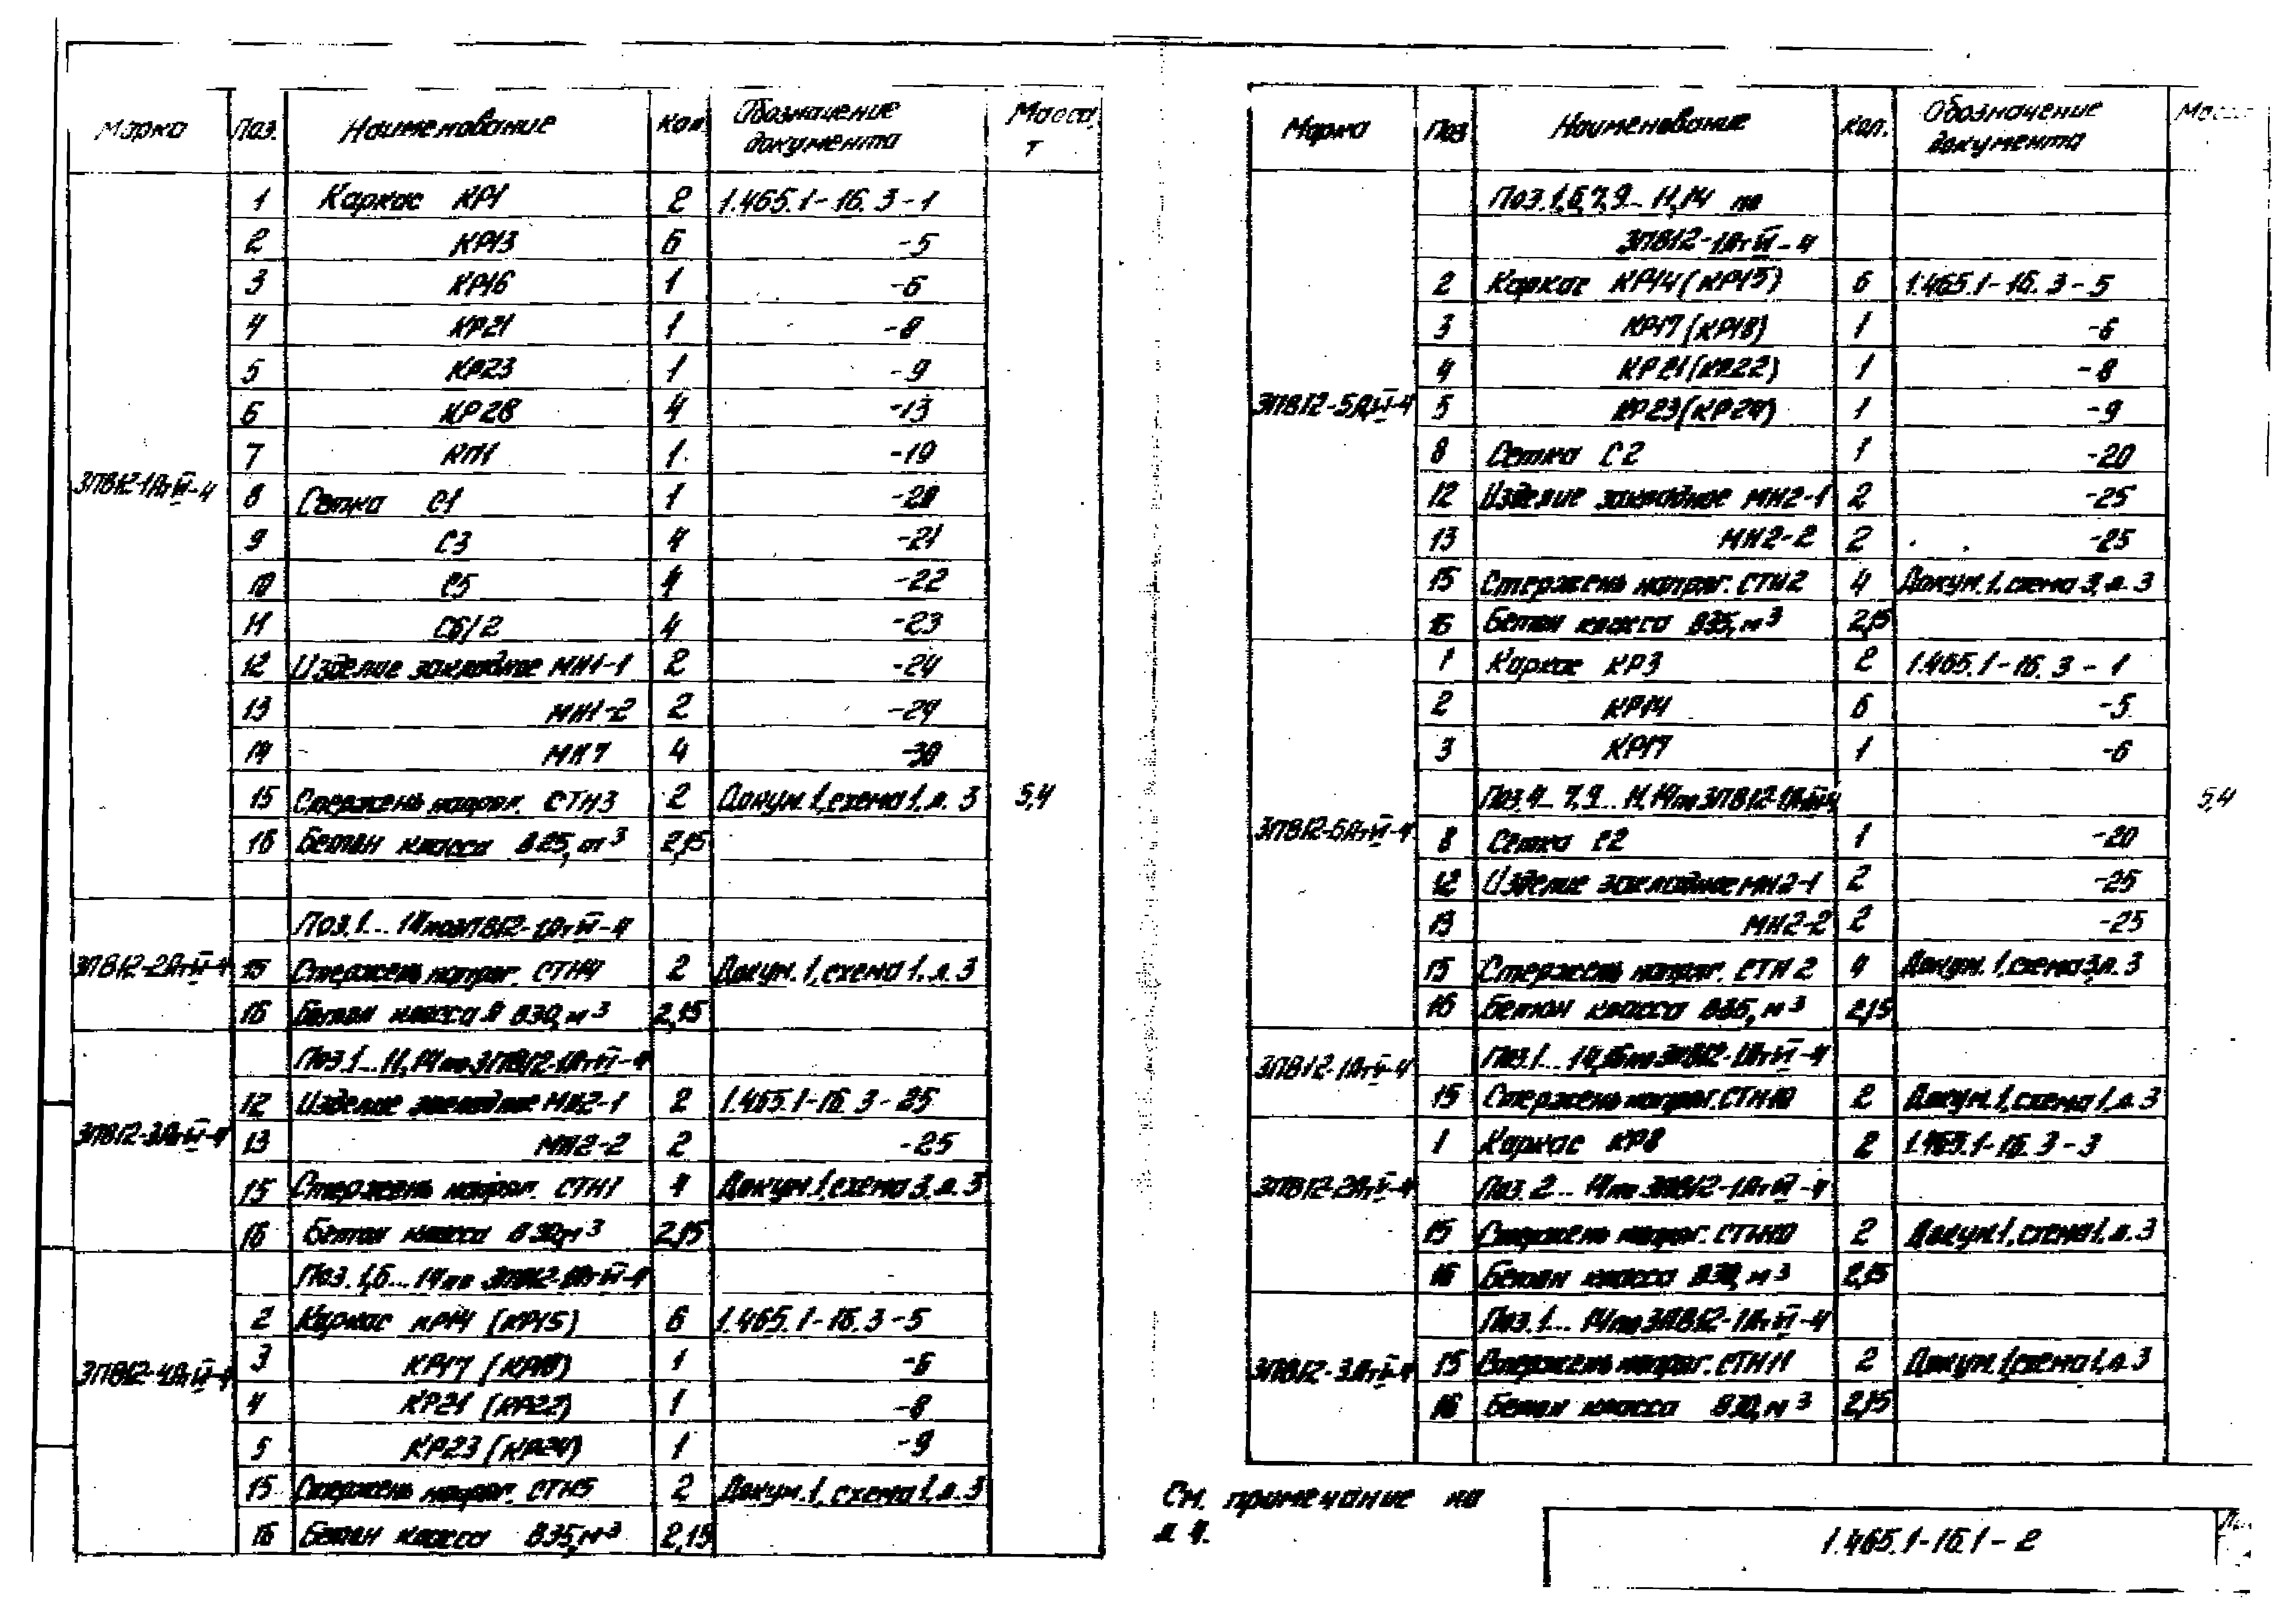 Марка Поз. Наименование Кол. Обозначение документа Масса, т
1 Каркас КР1 2 1.465.1-16.3-1
2 КР13 6 -5
3 КР16 1 -6
4 КР21 1 -8
5 КР23 1 -9
6 КР28 4 -13
7 КП1 1 -19
3ПВ12-1АтVI-4 8 Сетка С1 1 -20
9 С3 4 -21
10 С5 4 -22
11 С6/2 4 -23
12 Изделие закладное МН1-1 2 -24
13 МН1-2 2 -24
14 МН7 4 -30
15 Стержень напряг. СТН3 2 Докум.1, схема 1, л. 3 5,4
16 Бетон класса В25, м³ 2,15
Поз. 1... 14 по 3ПВ12-1АтVI-4
3ПВ12-2АтVI-4 15 Стержень напряг. СТН4 2 Докум. 1, схема 1, л. 3
16 Бетон класса В30, м³ 2,15
Поз. 1... 11, 14 по 3ПВ12-1АтVI-4
12 Изделие закладное МН2-1 2 1.465.1-16.3-25
3ПВ12-3АтVI-4 13 МН2-2 2 -25
15 Стержень напряг. СТН1 4 Докум.1, схема 3, л. 3
16 Бетон класса В30, м³ 2,15
Поз. 1,6... 14 по 3ПВ12-1АтVI-4
2 Каркас КР14 (КР15) 6 1.465.1-16.3-5
3ПВ12-4АтVI-4 3 КР17 (КР18) 1 -6
4 КР21 (КР22) 1 -8
5 КР23 (КР24) 1 -9
15 Стержень напряг. СТН5 2 Докум. 1, схема 1, л. 3
16 Бетон класса В35, м³ 2,15
Марка Поз Наименование Кол. Обозначение документа
Поз. 1,6,7,9... 11,14 по
3ПВ12-1АтVI-4
2 Каркас КР14 (КР15) 6 1.465.1-16.3-5
3 КР17 (КР18) 1 -6
4 КР21 (КР22) 1 -8
3ПВ12-5АтVI-4 5 КР23 (КР24) 1 -9
8 Сетка С2 1 -20
12 Изделие закладное МН2-1 2 -25
13 МН2-2 2 -25
15 Стержень напряг. СТН2 4 Докум. 1, схема 3, л. 3
16 Бетон класса В35, м³ 2,15
1 Каркас КР3 2 1.465.1-16.3-1
2 КР14 6 -5
3 КР17 1 -6
Поз. 4... 7, 9... 11, 14 по 3ПВ12-1АтVI-4 5,4
3ПВ12-6АтVI-4 8 Сетка С2 1 -20
12 Изделие закладное МН2-1 2 -25
13 МН2-2 2 -25
15 Стержень напряг. СТН2 4 Докум. 1, схема 3, л. 3
16 Бетон класса В35, м³ 2,15
3ПВ12-1АтV-4 Поз. 1... 14, 16 по 3ПВ12-1АтVI-4
15 Стержень напряг. СТН10 2 Докум. 1, схема 1, л. 3
1 Каркас КР8 2 1.465.1-16.3-3
3ПВ12-2АтV-4 Поз. 2... 14 по 3ПВ12-1АтVI-4
15 Стержень напряг. СТН10 2 Докум. 1, схема 1, л. 3
16 Бетон класса В30, м³ 2,15
Поз. 1... 14 по 3ПВ12-1АтVI-4
3ПВ12-3АтV-4 15 Стержень напряг. СТН11 2 Докум. 1, схема 1, л. 3
16 Бетон класса В30, м³ 2,15
См. примечание на
л 4.
1.465.1-16.1-2